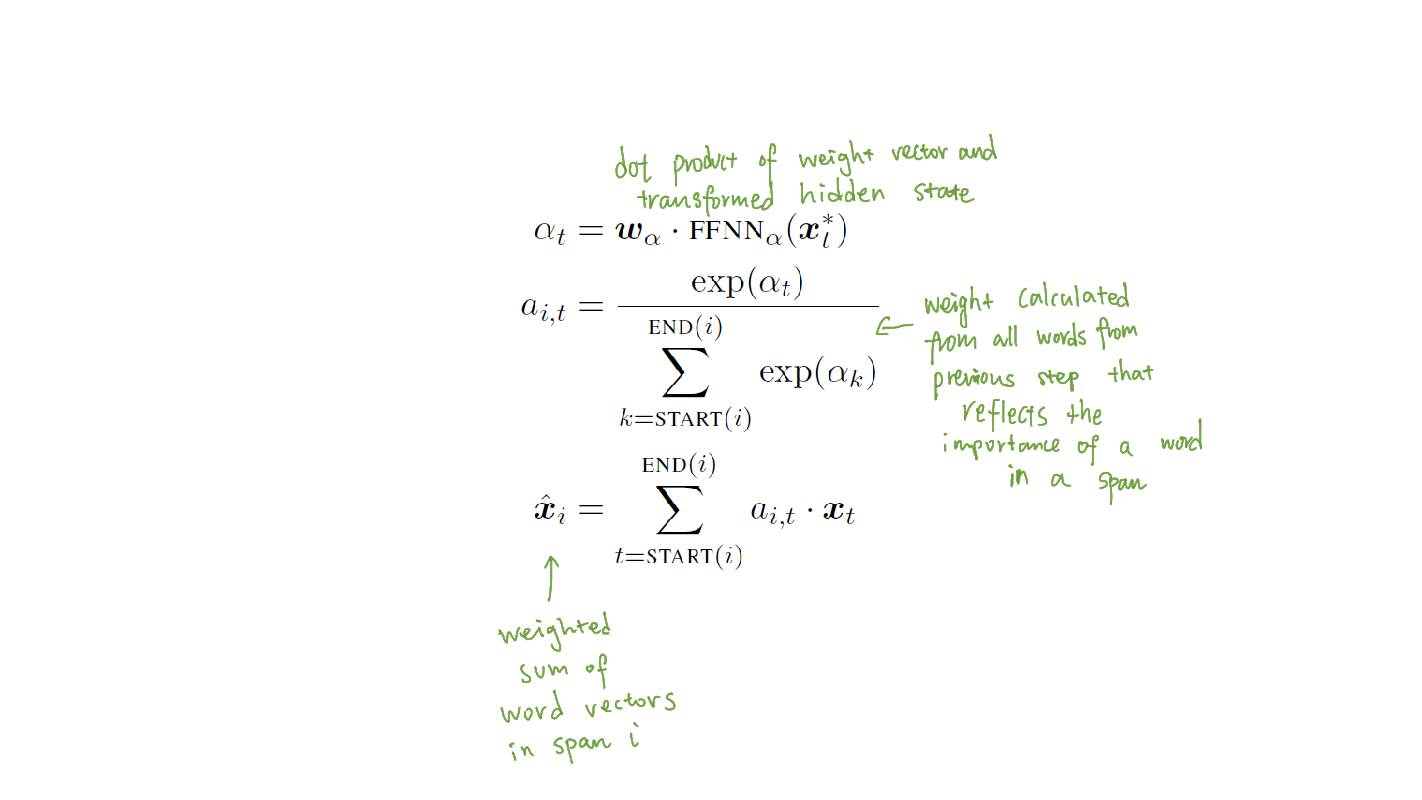 dot product of weight vector and
transformed hidden state
αₜ = w_α · FFNN_α(x*_t)
a_{i,t} = exp(αₜ) / ∑_{k=START(i)}^{END(i)} exp(α_k)
← weight calculated
from all words from
previous step that
reflects the
importance of a word
in a span
x̂_i = ∑_{t=START(i)}^{END(i)} a_{i,t} · x_t
↑
weighted
sum of
word vectors
in span i